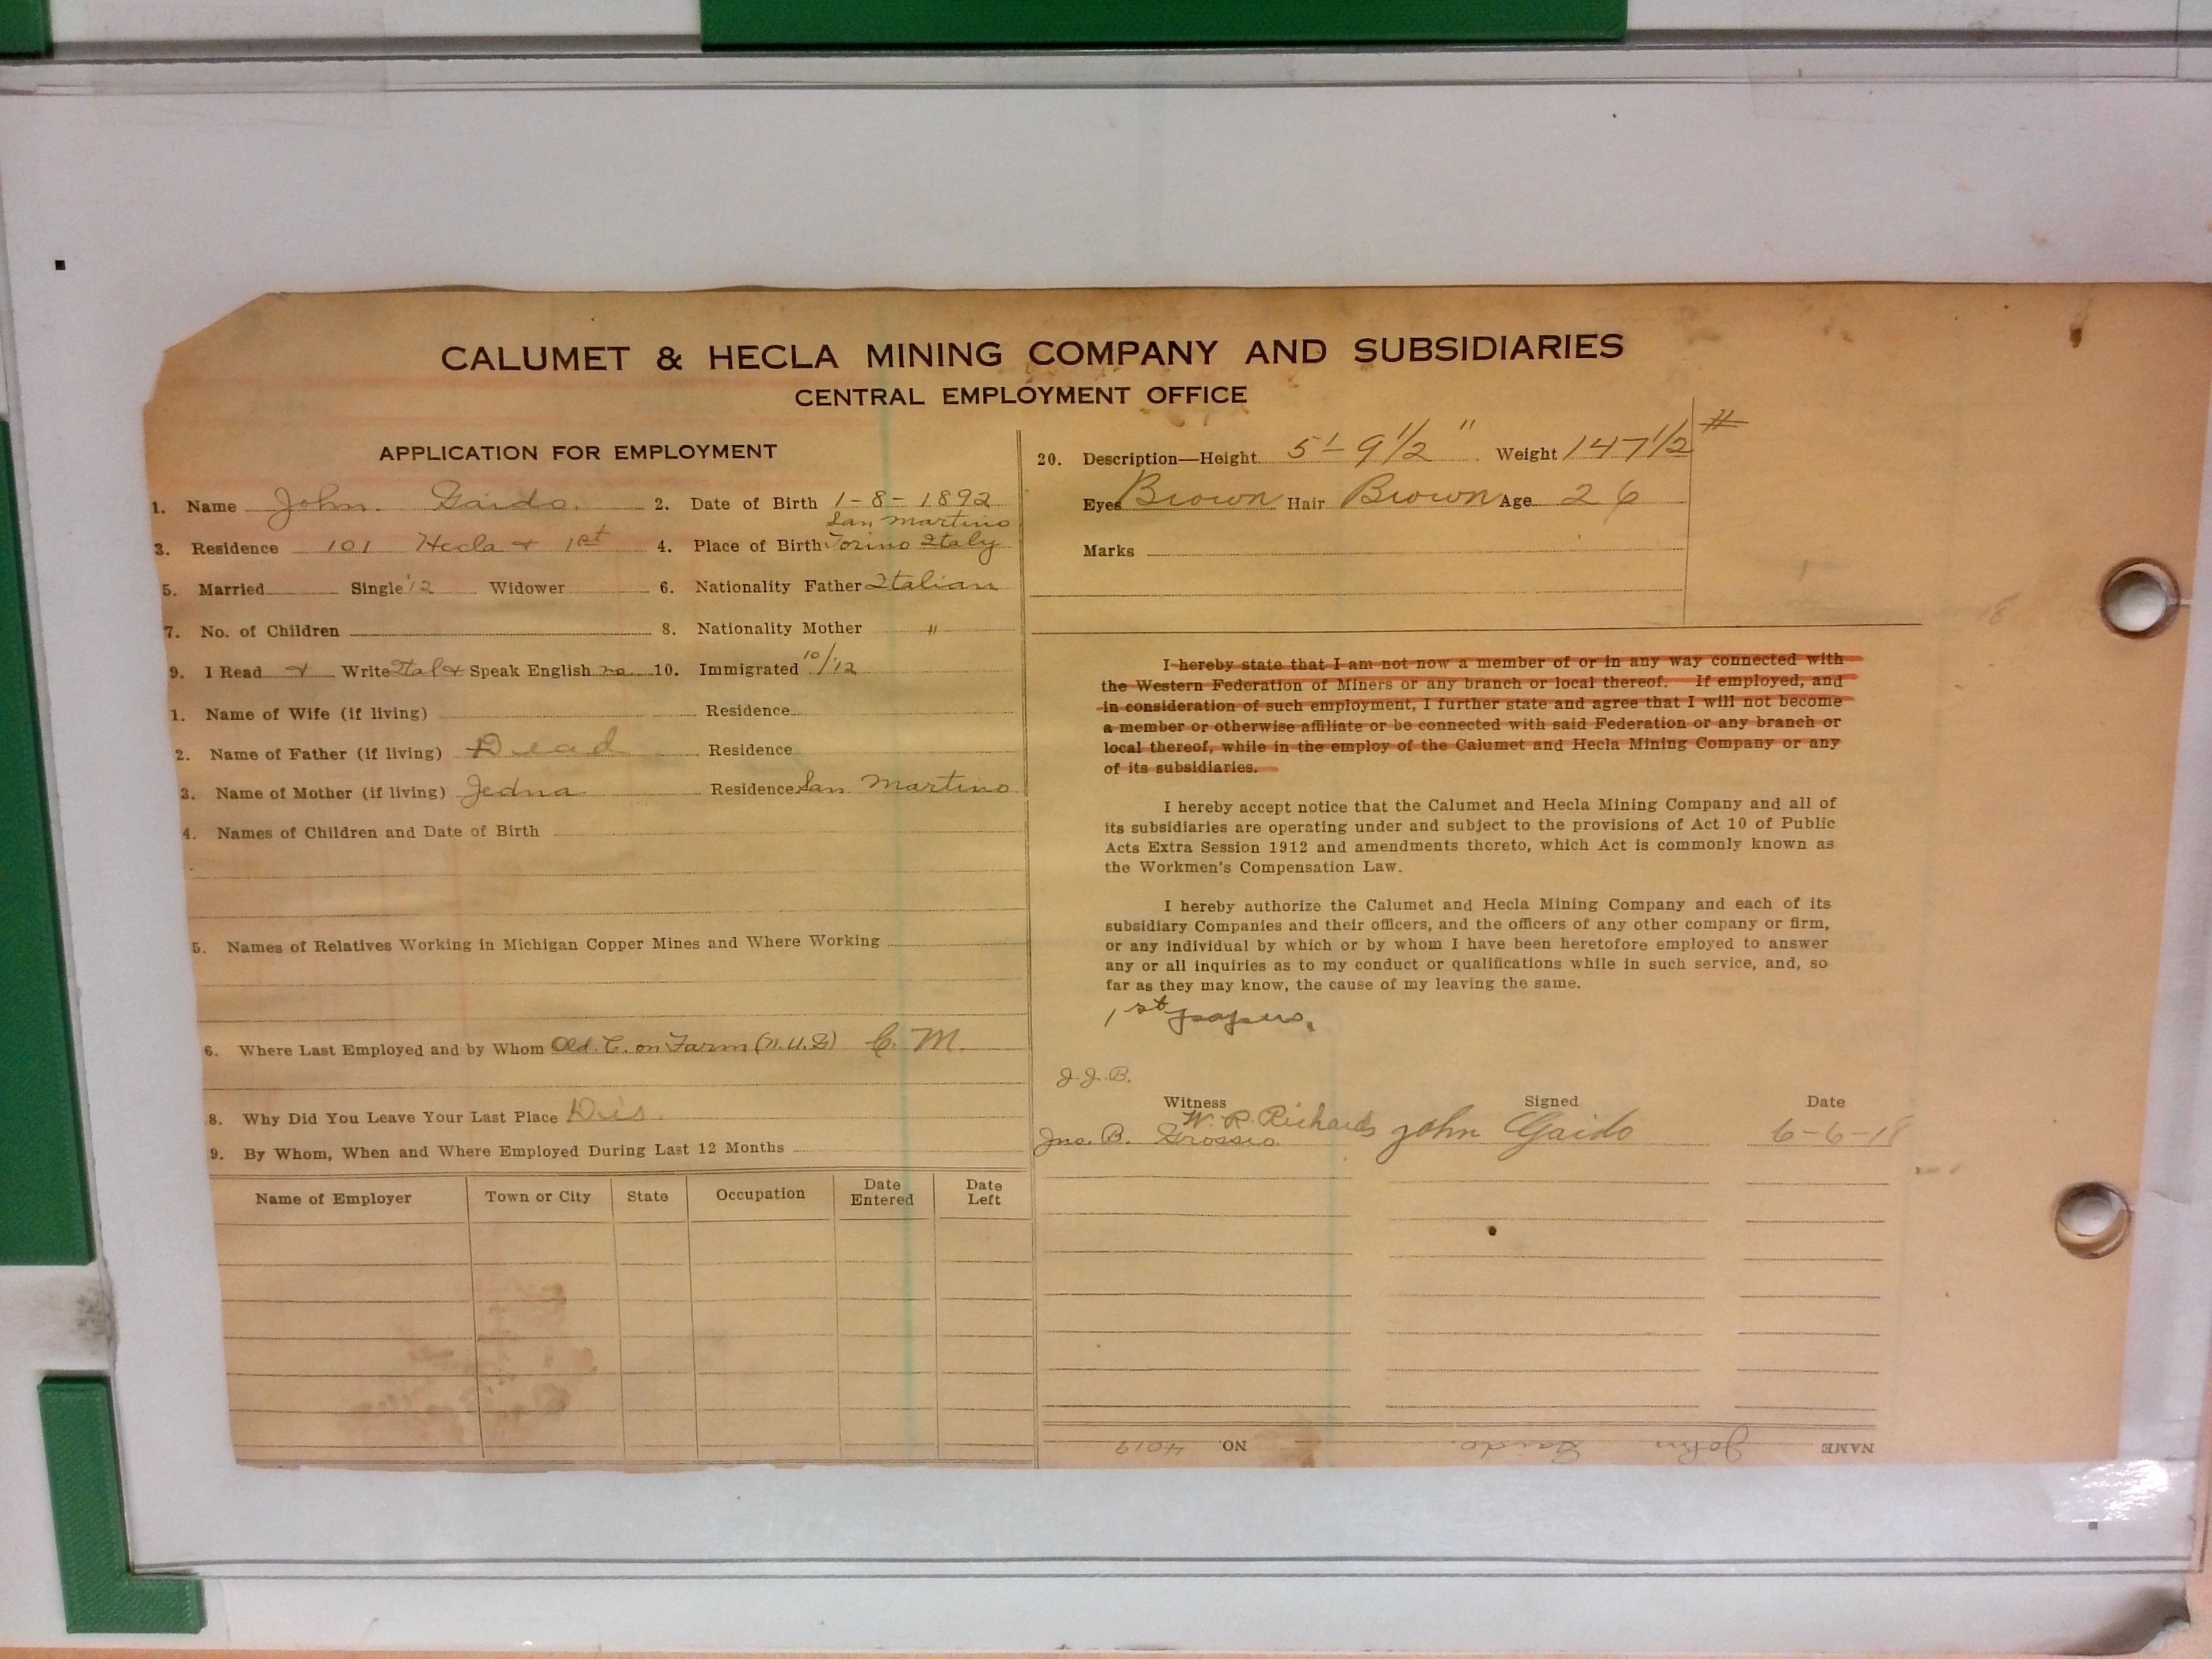 CALUMET & HECLA MINING COMPANY AND SUBSIDIARIES
CENTRAL EMPLOYMENT OFFICE
APPLICATION FOR EMPLOYMENT
1. Name John Gaido. 2. Date of Birth 1-8-1892
San Martino
3. Residence 101 Hecla & 1st 4. Place of Birth Torino Italy
5. Married Single '12 Widower 6. Nationality Father Italian
7. No. of Children 8. Nationality Mother "
9. I Read & Write Ital & Speak English no 10. Immigrated 10/'12
1. Name of Wife (if living) Residence
2. Name of Father (if living) Dead Residence
3. Name of Mother (if living) Jedna Residence San Martino
4. Names of Children and Date of Birth
5. Names of Relatives Working in Michigan Copper Mines and Where Working
6. Where Last Employed and by Whom Old. C. on Farm C. M.
8. Why Did You Leave Your Last Place Dis
9. By Whom, When and Where Employed During Last 12 Months
Name of Employer Town or City State Occupation Date Entered Date Left
20. Description—Height 5'-9 1/2" Weight 147 1/2 #
Eyes Brown Hair Brown Age 26
Marks
I hereby state that I am not now a member of or in any way connected with
the Western Federation of Miners or any branch or local thereof. If employed, and
in consideration of such employment, I further state and agree that I will not become
a member or otherwise affiliate or be connected with said Federation or any branch or
local thereof, while in the employ of the Calumet and Hecla Mining Company or any
of its subsidiaries.
I hereby accept notice that the Calumet and Hecla Mining Company and all of
its subsidiaries are operating under and subject to the provisions of Act 10 of Public
Acts Extra Session 1912 and amendments thereto, which Act is commonly known as
the Workmen's Compensation Law.
I hereby authorize the Calumet and Hecla Mining Company and each of its
subsidiary Companies and their officers, and the officers of any other company or firm,
or any individual by which or by whom I have been heretofore employed to answer
any or all inquiries as to my conduct or qualifications while in such service, and, so
far as they may know, the cause of my leaving the same.
1st papers.
J.J.B.
Witness Signed Date
W. R. Richards
Jno. B. Grosso John Gaido 6-6-18
NAME John Gaido. NO. 4019